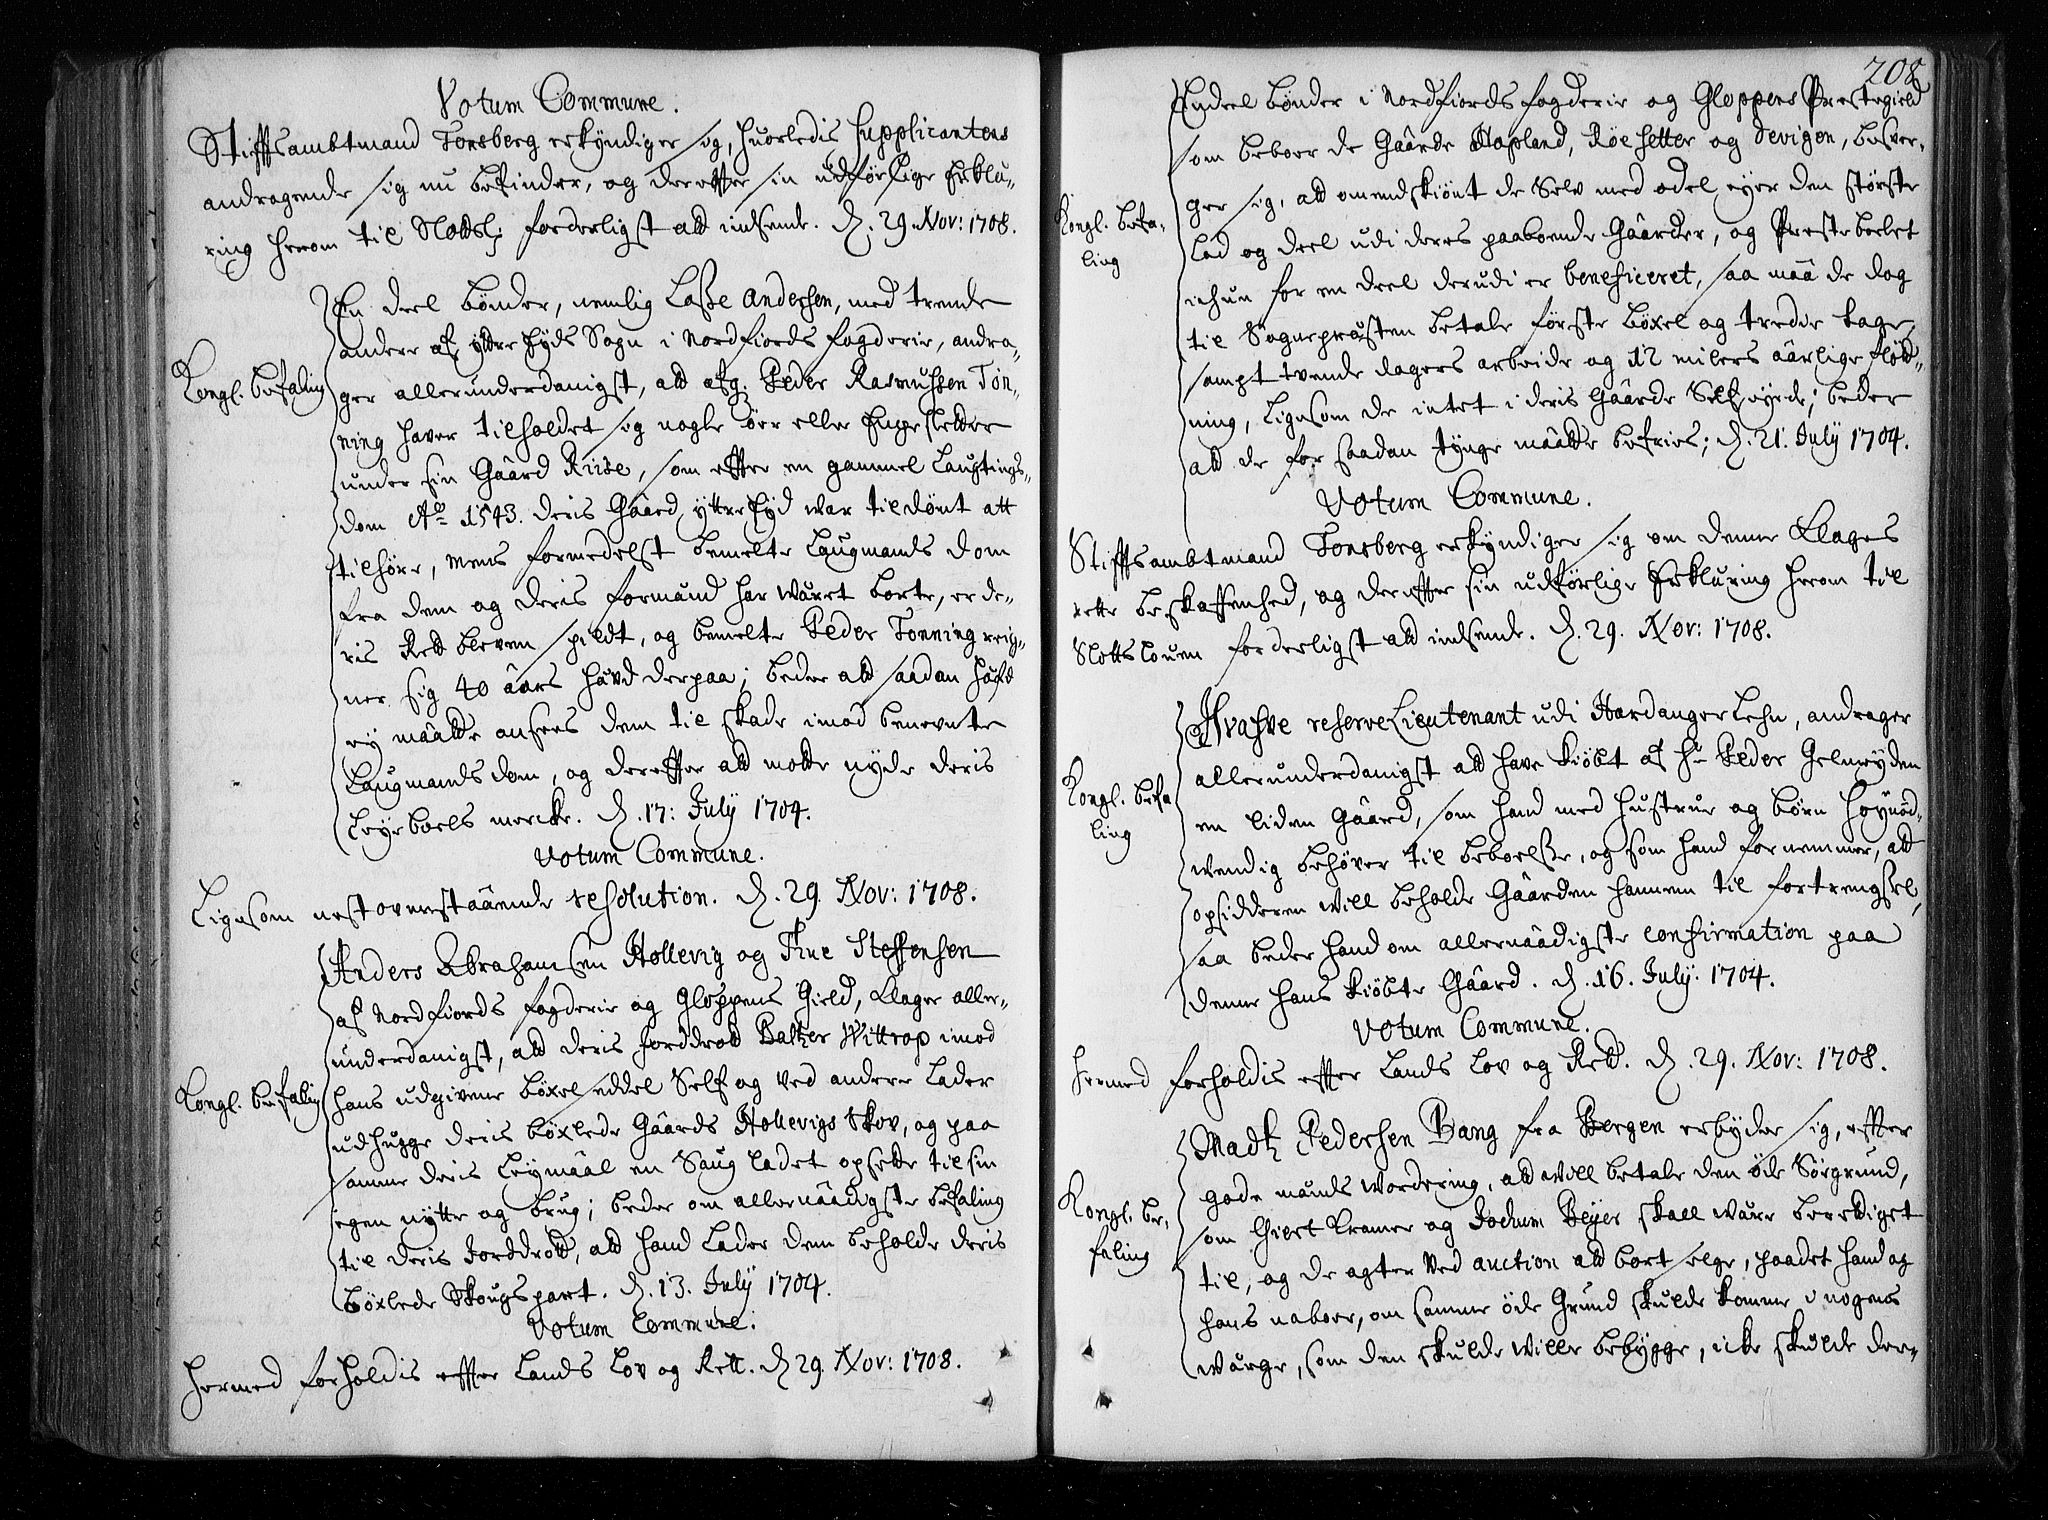 Votum Commune.
Stiffsambtmand Tonsberg erkyndiger sig, huorledis Supplicantens
andragende sig nu befinder, og dereffter sin udførlige Erklæ-
ring herom til Slottsl: forderligst att indsende. D. 29. Nov: 1708.
Kongl. befaling
En deel bønder, nemlig Lasse Andersen, med trende
andere af yttre Eyds Sogn i Nordfiords fogderie, andra-
ger allerunderdanigst, att afg. Peder Rasmussen Ton-
ning haver tilholdet sig nogle øer eller Engesletter
under sin Gaard Riise, som effter en gammel Laugtings-
dom Ao 1543. deris Gaard yttre Eyd war tildømt att
tilhøre, mens formedelst bemelte Laugmands dom
fra dem og deris formænd har wæret borte, er de-
ris Rett bleven spildt, og bemelte Peder Tonning reig-
ner sig 40 åars hævd derpaa; beder att saadan hæfd
ey måatte ansees dem til skade imod benevnte
Laugmands dom, og dereffter att motte nyde deris
Leyeboels mercke. D. 17: July 1704.
Votum Commune.
Ligesom nestoverståaende resolution. D. 29. Nov: 1708.
Kongl. befaling
Anders Abrahamsen Hollevig og Thue Steffensen
af Nordfiords fogderie og Gloppens Gield, klager aller-
underdanigst, att deris Jorddrott Baltzer Wittrop imod
hans udgivene böxelseddel Self og ved andere lader
udhugge deris böxlede Gåards Hollevigs Skov, og paa
samme deris Leymåal en Saug ladet opsette til sin
egen nytte og brug; beder om allernåadigste befaling
til deris Jorddrott, att hand lader dem beholde deris
böxlede Skougspart. D. 13. July 1704.
Votum Commune.
Hermed forholdis effter Lands Lov og Rett. D 29. Nov: 1708.
208
Kongl. befa-
ling
Endeel bønder i Nordfiords fogderie og Gloppens Prestegield
som beboer de Gåarde Hopland, Röesetter og Devigen, besver-
ger sig, att omendskiönt de Selv med odel eyer den störste
Lod og deel udi deres paaboende Gåarder, og Prestebolet
ichun for en deel derudi er beneficeret, saa måa de dog
til Sognepræsten betale förste böxel og tredie tage,
sampt tvende dagers arbeide og 12 milers åarlige fløt-
ning, ligesom de intet i deris Gåarde Self eyede; beder
att de for saadan tynge måatte befries; D. 21. July 1704.
Votum Commune.
Stiffsambtmand Tonsberg erkyndiger sig om denne klages
rette beskaffenhed, og dereffter sin udførlige Erklæring herom til
Slottslouen forderligst att indsende. D. 29. Nov: 1708.
Kongl. befa
ling
reserve Lieutenant udi Hardanger Lehn, andrager
allerunderdanigst att have kiöbt af Hr Peder Gelmeyden
en liden Gåard, som hand med hustrue og børn höynød-
wendig behøver til beboelse, og som hand fornemmer, att
opsidderen will beholde Gåarden hannem til fortrengsel,
saa beder hand om allernåadigste confirmation paa
denne hans kiöbte Gåard. D. 16. July. 1704.
Votum Commune.
Hermed forholdis effter Lands Lov og Rett. D. 29. Nov: 1708.
Kongl. be-
faling
Madtz Pedersen Bang fra Bergen erbyder sig, effter
gode mænds wordering, att will betale den öde Sörgrund,
som Giert Kramer og Jochum Beyer skall være berettiget
til, og de agter ved auction att bortselge, paadet hand og
hans naboer, om samme öde Grund skulde komme i nogens
wærge, som den skulde wille bebygge, icke skulde der-